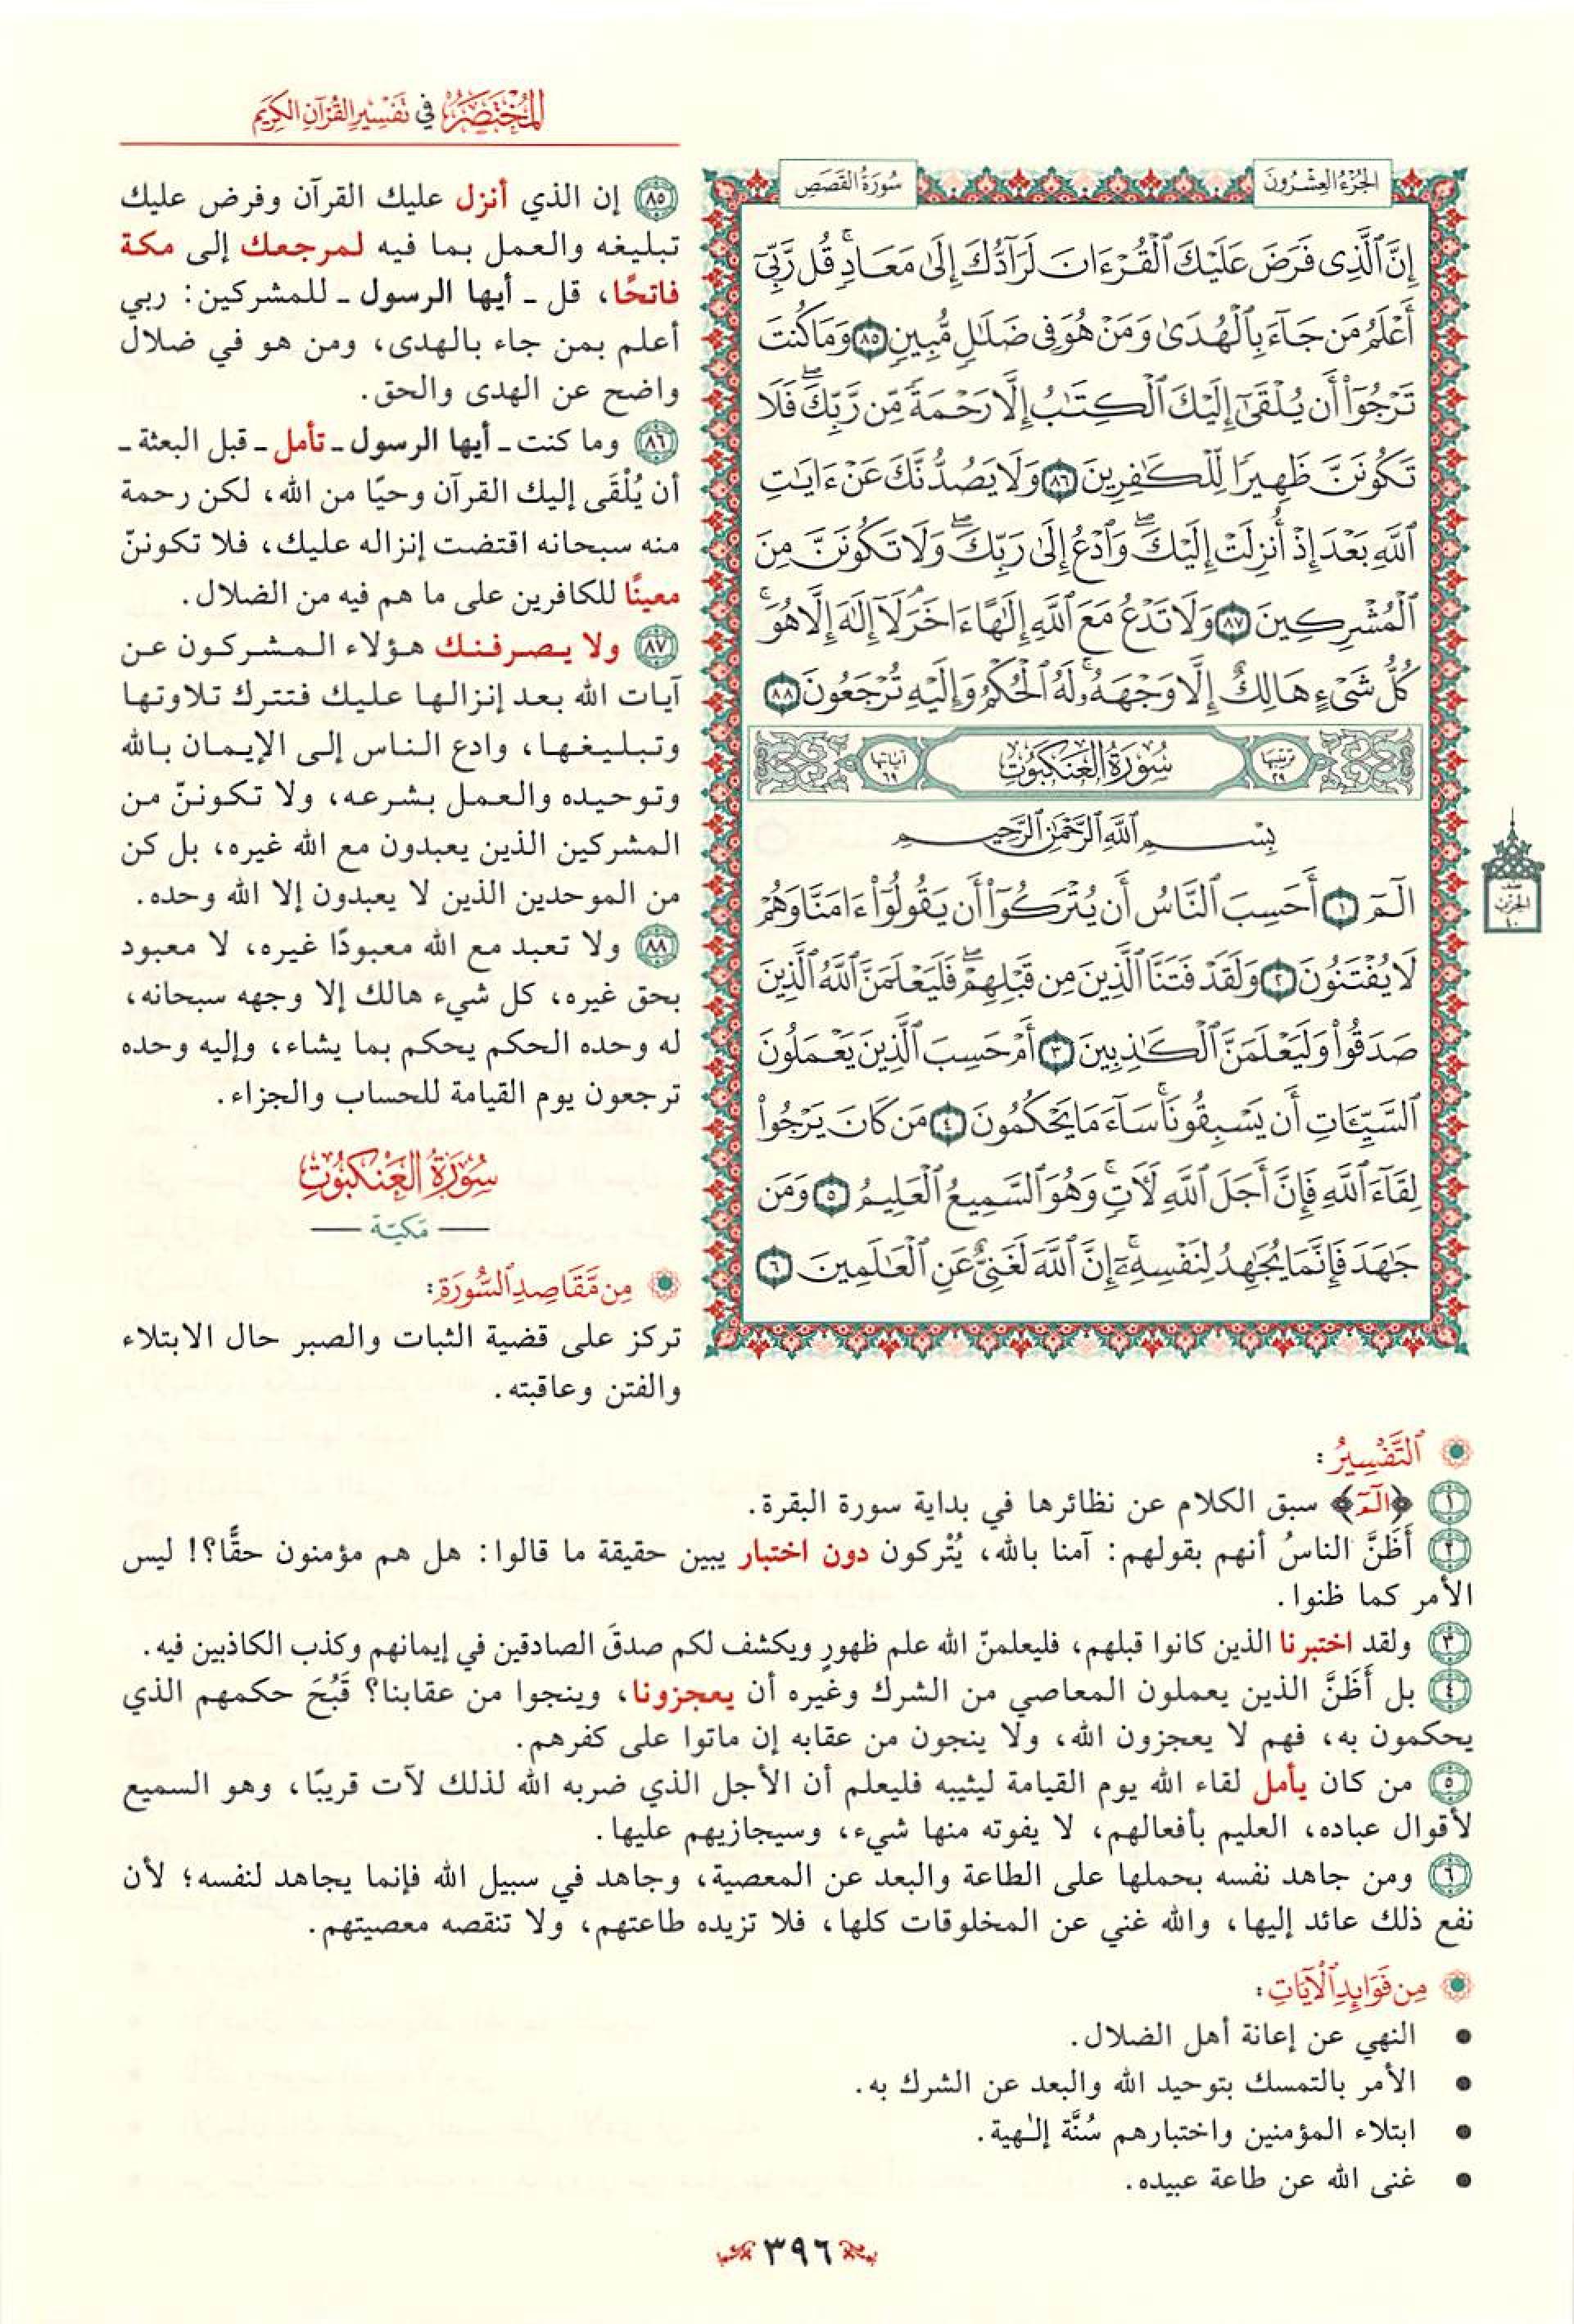 المختصر في تفسير القرآن الكريم
الجزء العشرون
سورة القصص
إِنَّ ٱلَّذِى فَرَضَ عَلَيْكَ ٱلْقُرْءَانَ لَرَآدُّكَ إِلَىٰ مَعَادٍۚ قُل رَّبِّىٓ
أَعْلَمُ مَن جَآءَ بِٱلْهُدَىٰ وَمَنْ هُوَ فِى ضَلَٰلٍ مُّبِينٍ ٨٥ وَمَا كُنتَ
تَرْجُوٓا۟ أَن يُلْقَىٰٓ إِلَيْكَ ٱلْكِتَٰبُ إِلَّا رَحْمَةً مِّن رَّبِّكَۖ فَلَا
تَكُونَنَّ ظَهِيرًا لِّلْكَٰفِرِينَ ٨٦ وَلَا يَصُدُّنَّكَ عَنْ ءَايَٰتِ
ٱللَّهِ بَعْدَ إِذْ أُنزِلَتْ إِلَيْكَۖ وَٱدْعُ إِلَىٰ رَبِّكَۖ وَلَا تَكُونَنَّ مِنَ
ٱلْمُشْرِكِينَ ٨٧ وَلَا تَدْعُ مَعَ ٱللَّهِ إِلَٰهًا ءَاخَرَۘ لَآ إِلَٰهَ إِلَّا هُوَۚ
كُلُّ شَىْءٍ هَالِكٌ إِلَّا وَجْهَهُۥۚ لَهُ ٱلْحُكْمُ وَإِلَيْهِ تُرْجَعُونَ ٨٨
ترتيبها ٢٩
سورة العنكبوت
آياتها ٦٩
بِسْمِ ٱللَّهِ ٱلرَّحْمَٰنِ ٱلرَّحِيمِ
الٓمٓ ١ أَحَسِبَ ٱلنَّاسُ أَن يُتْرَكُوٓا۟ أَن يَقُولُوٓا۟ ءَامَنَّا وَهُمْ
لَا يُفْتَنُونَ ٢ وَلَقَدْ فَتَنَّا ٱلَّذِينَ مِن قَبْلِهِمْۖ فَلَيَعْلَمَنَّ ٱللَّهُ ٱلَّذِينَ
صَدَقُوا۟ وَلَيَعْلَمَنَّ ٱلْكَٰذِبِينَ ٣ أَمْ حَسِبَ ٱلَّذِينَ يَعْمَلُونَ
ٱلسَّيِّـَٔاتِ أَن يَسْبِقُونَاۚ سَآءَ مَا يَحْكُمُونَ ٤ مَن كَانَ يَرْجُوا۟
لِقَآءَ ٱللَّهِ فَإِنَّ أَجَلَ ٱللَّهِ لَـَٔاتٍۚ وَهُوَ ٱلسَّمِيعُ ٱلْعَلِيمُ ٥ وَمَن
جَٰهَدَ فَإِنَّمَا يُجَٰهِدُ لِنَفْسِهِۦٓۚ إِنَّ ٱللَّهَ لَغَنِىٌّ عَنِ ٱلْعَٰلَمِينَ ٦
٨٥ إن الذي أنزل عليك القرآن وفرض عليك
تبليغه والعمل بما فيه لمرجعك إلى مكة
فاتحًا، قل ـ أيها الرسول ـ للمشركين: ربي
أعلم بمن جاء بالهدى، ومن هو في ضلال
واضح عن الهدى والحق.
٨٦ وما كنت ـ أيها الرسول ـ تأمل ـ قبل البعثة ـ
أن يُلْقَى إليك القرآن وحيًا من الله، لكن رحمة
منه سبحانه اقتضت إنزاله عليك، فلا تكوننّ
معينًا للكافرين على ما هم فيه من الضلال.
٨٧ ولا يصرفنك هؤلاء المشركون عن
آيات الله بعد إنزالها عليك فتترك تلاوتها
وتبليغها، وادع الناس إلى الإيمان بالله
وتوحيده والعمل بشرعه، ولا تكوننّ من
المشركين الذين يعبدون مع الله غيره، بل كن
من الموحدين الذين لا يعبدون إلا الله وحده.
٨٨ ولا تعبد مع الله معبودًا غيره، لا معبود
بحق غيره، كل شيء هالك إلا وجهه سبحانه،
له وحده الحكم يحكم بما يشاء، وإليه وحده
ترجعون يوم القيامة للحساب والجزاء.
سورة العنكبوت
مكية
من مقاصد السورة:
تركز على قضية الثبات والصبر حال الابتلاء
والفتن وعاقبته.
التفسير:
١ ﴿الٓمٓ﴾ سبق الكلام عن نظائرها في بداية سورة البقرة.
٢ أَظَنَّ الناسُ أنهم بقولهم: آمنا بالله، يُتْركون دون اختبار يبين حقيقة ما قالوا: هل هم مؤمنون حقًّا؟! ليس
الأمر كما ظنوا.
٣ ولقد اختبرنا الذين كانوا قبلهم، فليعلمنّ الله علم ظهورٍ ويكشف لكم صدقَ الصادقين في إيمانهم وكذب الكاذبين فيه.
٤ بل أَظَنَّ الذين يعملون المعاصي من الشرك وغيره أن يعجزونا، وينجوا من عقابنا؟ قَبُحَ حكمهم الذي
يحكمون به، فهم لا يعجزون الله، ولا ينجون من عقابه إن ماتوا على كفرهم.
٥ من كان يأمل لقاء الله يوم القيامة ليثيبه فليعلم أن الأجل الذي ضربه الله لذلك لآت قريبًا، وهو السميع
لأقوال عباده، العليم بأفعالهم، لا يفوته منها شيء، وسيجازيهم عليها.
٦ ومن جاهد نفسه بحملها على الطاعة والبعد عن المعصية، وجاهد في سبيل الله فإنما يجاهد لنفسه؛ لأن
نفع ذلك عائد إليها، والله غني عن المخلوقات كلها، فلا تزيده طاعتهم، ولا تنقصه معصيتهم.
من فوائد الآيات:
• النهي عن إعانة أهل الضلال.
• الأمر بالتمسك بتوحيد الله والبعد عن الشرك به.
• ابتلاء المؤمنين واختبارهم سُنَّة إلـٰهية.
• غنى الله عن طاعة عبيده.
٣٩٦